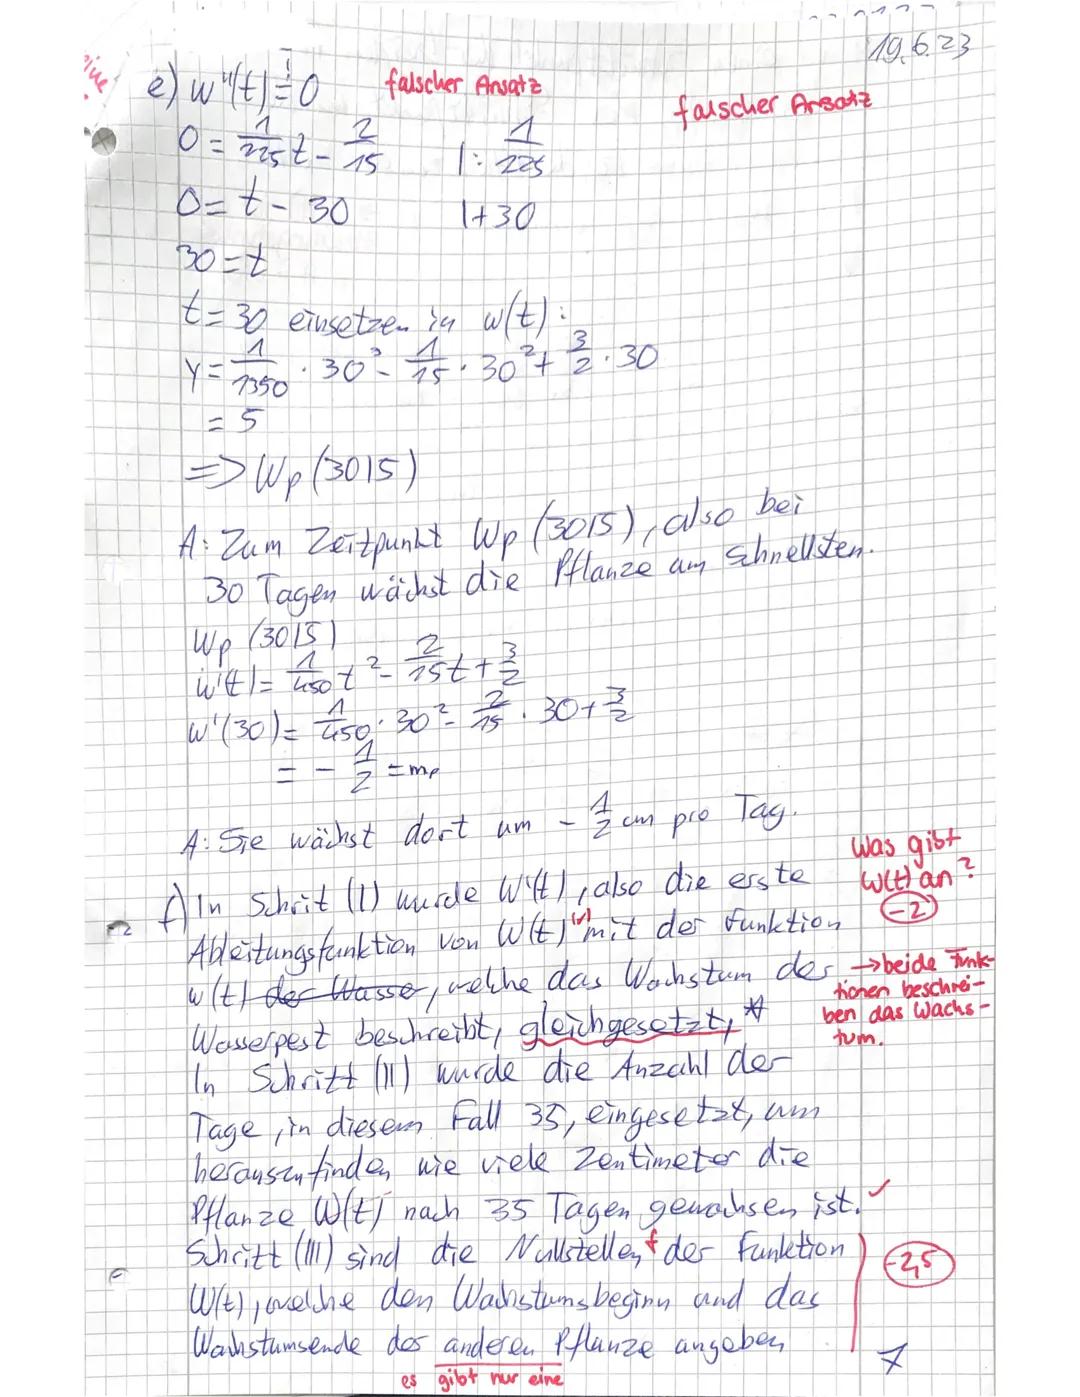 19.6.23
e) w''(t) = 0 falscher Ansatz
falscher Ansatz
0 = 1/225 t - 2/15 |: 1/225
0 = t - 30 |+30
30 = t
t = 30 einsetzen in w(t):
y = 1/1350 · 30³ - 1/15 · 30² + 3/2 · 30
= 5
=> Wp (30|5)
A: Zum Zeitpunkt Wp (30|5), also bei
30 Tagen wächst die Pflanze am schnellsten.
Wp (30|5)
w'(t) = 1/450 t² - 2/15 t + 3/2
w'(30) = 1/450 · 30² - 2/15 · 30 + 3/2
= - 1/2 = mp
A: Sie wächst dort um - 1/2 cm pro Tag.
Was gibt
W(t) an?
-2
f) In Schrit (I) wurde W'(t), also die erste
Ableitungsfunktion von W(t) (r) mit der Funktion
w(t) der Wasser, welche das Wachstum der
→ beide Funk-
tionen beschrei-
ben das Wachs-
tum.
Wasserpest beschreibt, gleichgesetzt, *
In Schritt (II) wurde die Anzahl der
Tage, in diesem Fall 35, eingesetzt, um
herauszufinden, wie viele Zentimeter die
Pflanze W(t) nach 35 Tagen gewachsen ist. ✓
Schritt (III) sind die Nullstellen f der Funktion
-2,5
W(t), welche den Wachstumsbeginn und das
Wachstumsende der anderen Pflanze angeben
7
es gibt nur eine